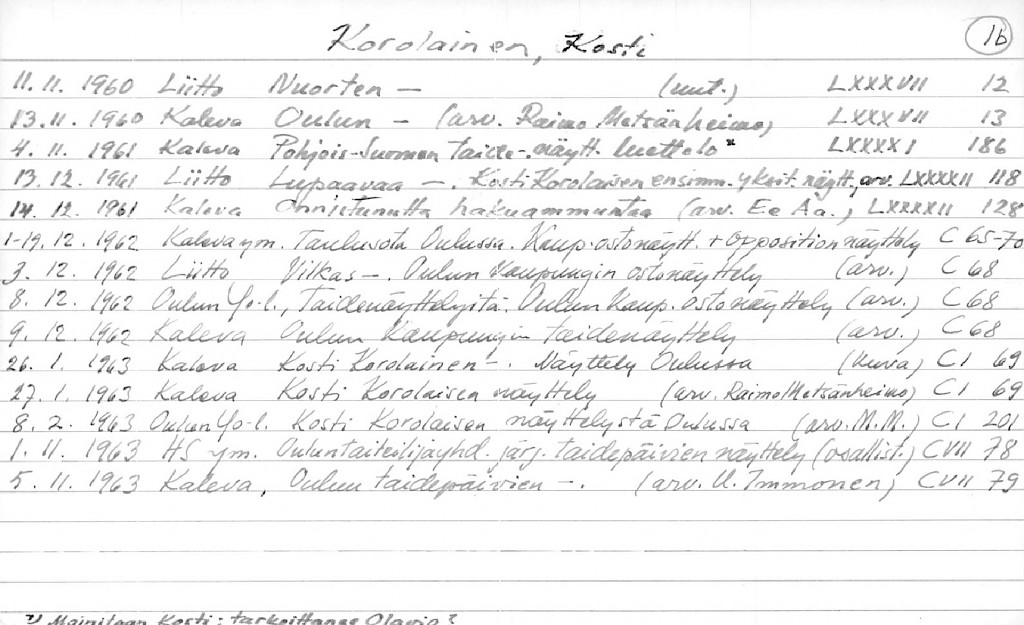 Korolainen, Kosti 16
11.11. 1960 Liitto Nuorten — (uut.) LXXXVII 12
13.11. 1960 Kaleva Oulun — (arv. Raimo Metsänheimo) LXXXVII 13
4. 11. 1961 Kaleva Pohjois-Suomen taide-.näytt. luettelo* LXXXXI 186
13. 12. 1961 Liitto Lupaavaa —. Kosti Korolaisen ensimm. yksit. näytt., arv. LXXXXII 118
14. 12. 1961 Kaleva Onnistunutta hakuammuntaa (arv. Ee Aa.) LXXXXII 128
1-19. 12. 1962 Kaleva ym. Taulusota Oulussa. Kaup. ostonäytt. + opposition näyttely C 65-70
3. 12. 1962 Liitto Vilkas —. Oulun kaupungin ostonäyttely (arv.) C 68
8. 12. 1962 Oulun Yo-l., Taidenäyttelyitä. Oulun kaup. ostonäyttely (arv.) C 68
9. 12. 1962 Kaleva Oulun kaupungin taidenäyttely (arv.) C 68
26. 1. 1963 Kaleva Kosti Korolainen —. Näyttely Oulussa (kuva) CI 69
27. 1. 1963 Kaleva Kosti Korolaisen näyttely (arv. Raimo Metsänheimo) CI 69
8. 2. 1963 Oulun Yo-l. Kosti Korolaisen näyttelystä Oulussa (arv. M.M.) CI 201
1. 11. 1963 HS ym. Oulun taiteilijayhd. järj. taidepäivien näyttely (osallist.) CVII 78
5. 11. 1963 Kaleva, Oulun taidepäivien —. (arv. U. Immonen) CVII 79
*) Mainitaan Kosti: tarkoittanee Olavia?